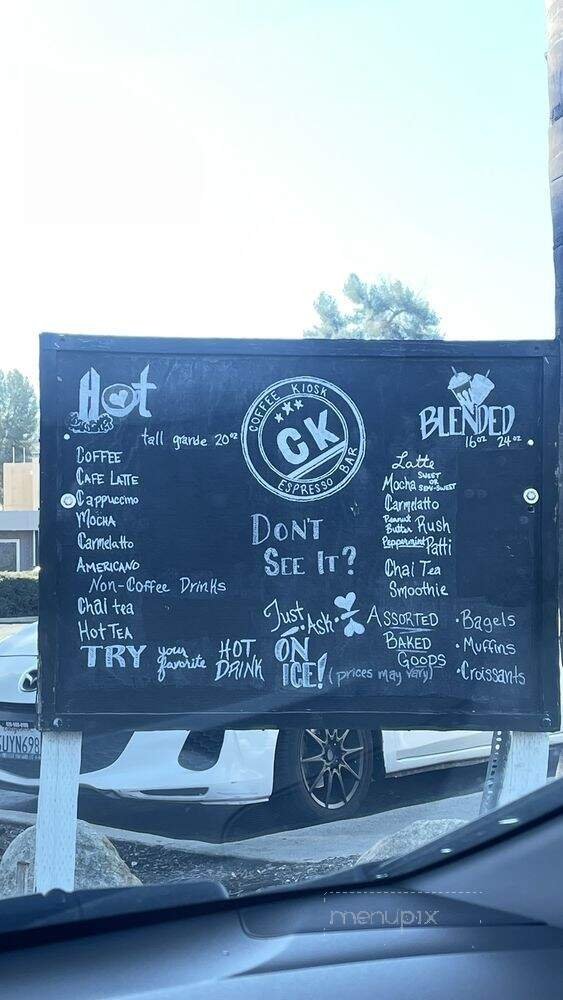 Hot
tall grande 20oz
COFFEE
CAFE LATTE
Cappuccino
MOCHA
Carmelatto
AMERICANO
Non-Coffee Drinks
Chai tea
Hot TEA
TRY your favorite HOT DRINK
ON ICE! (prices may vary)
COFFEE KIOSK
CK
ESPRESSO BAR
DON'T
SEE IT?
Just Ask
BLENDED
16oz 24oz
Latte
Mocha SWEET OR SEMI-SWEET
Carmelatto
Peanut Butter Rush
Peppermint Patti
Chai Tea
Smoothie
ASSORTED
BAKED
GOODS
•Bagels
•Muffins
•Croissants
menupix